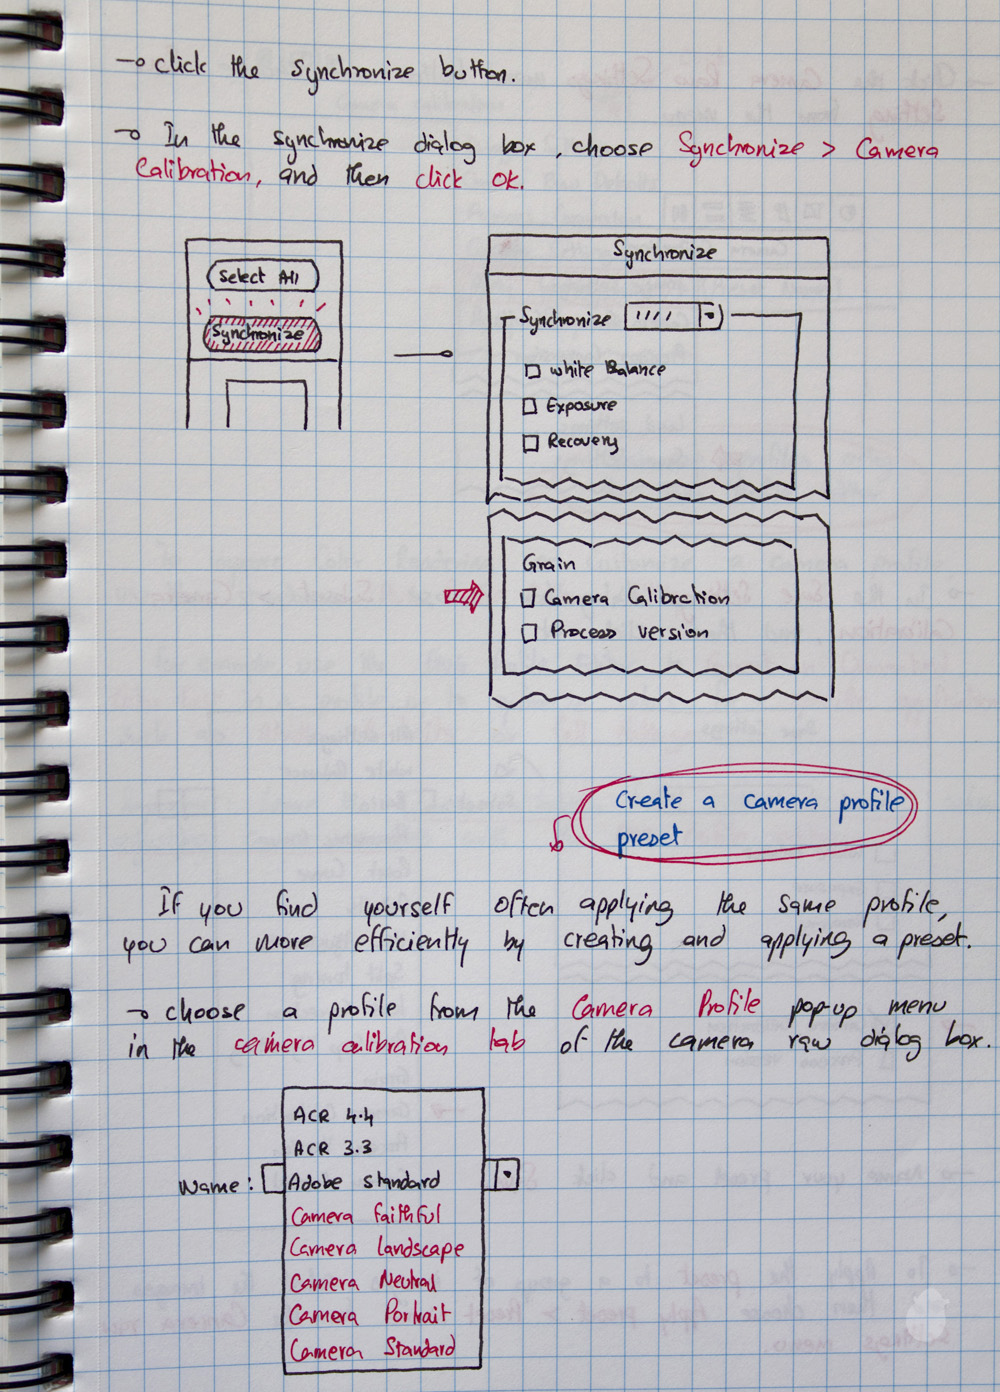 click the Synchronize button.
In the synchronize dialog box, choose Synchronize > Camera
Calibration, and then click OK.
Select All
Synchronize
Synchronize
Synchronize
White Balance
Exposure
Recovery
Grain
Camera Calibration
Process version
Create a camera profile
preset
If you find yourself often applying the same profile,
you can more efficiently by creating and applying a preset.
choose a profile from the Camera Profile pop-up menu
in the camera calibration tab of the camera raw dialog box.
ACR 4.4
ACR 3.3
Name: Adobe standard
Camera Faithful
Camera landscape
Camera Neutral
Camera Portrait
Camera Standard